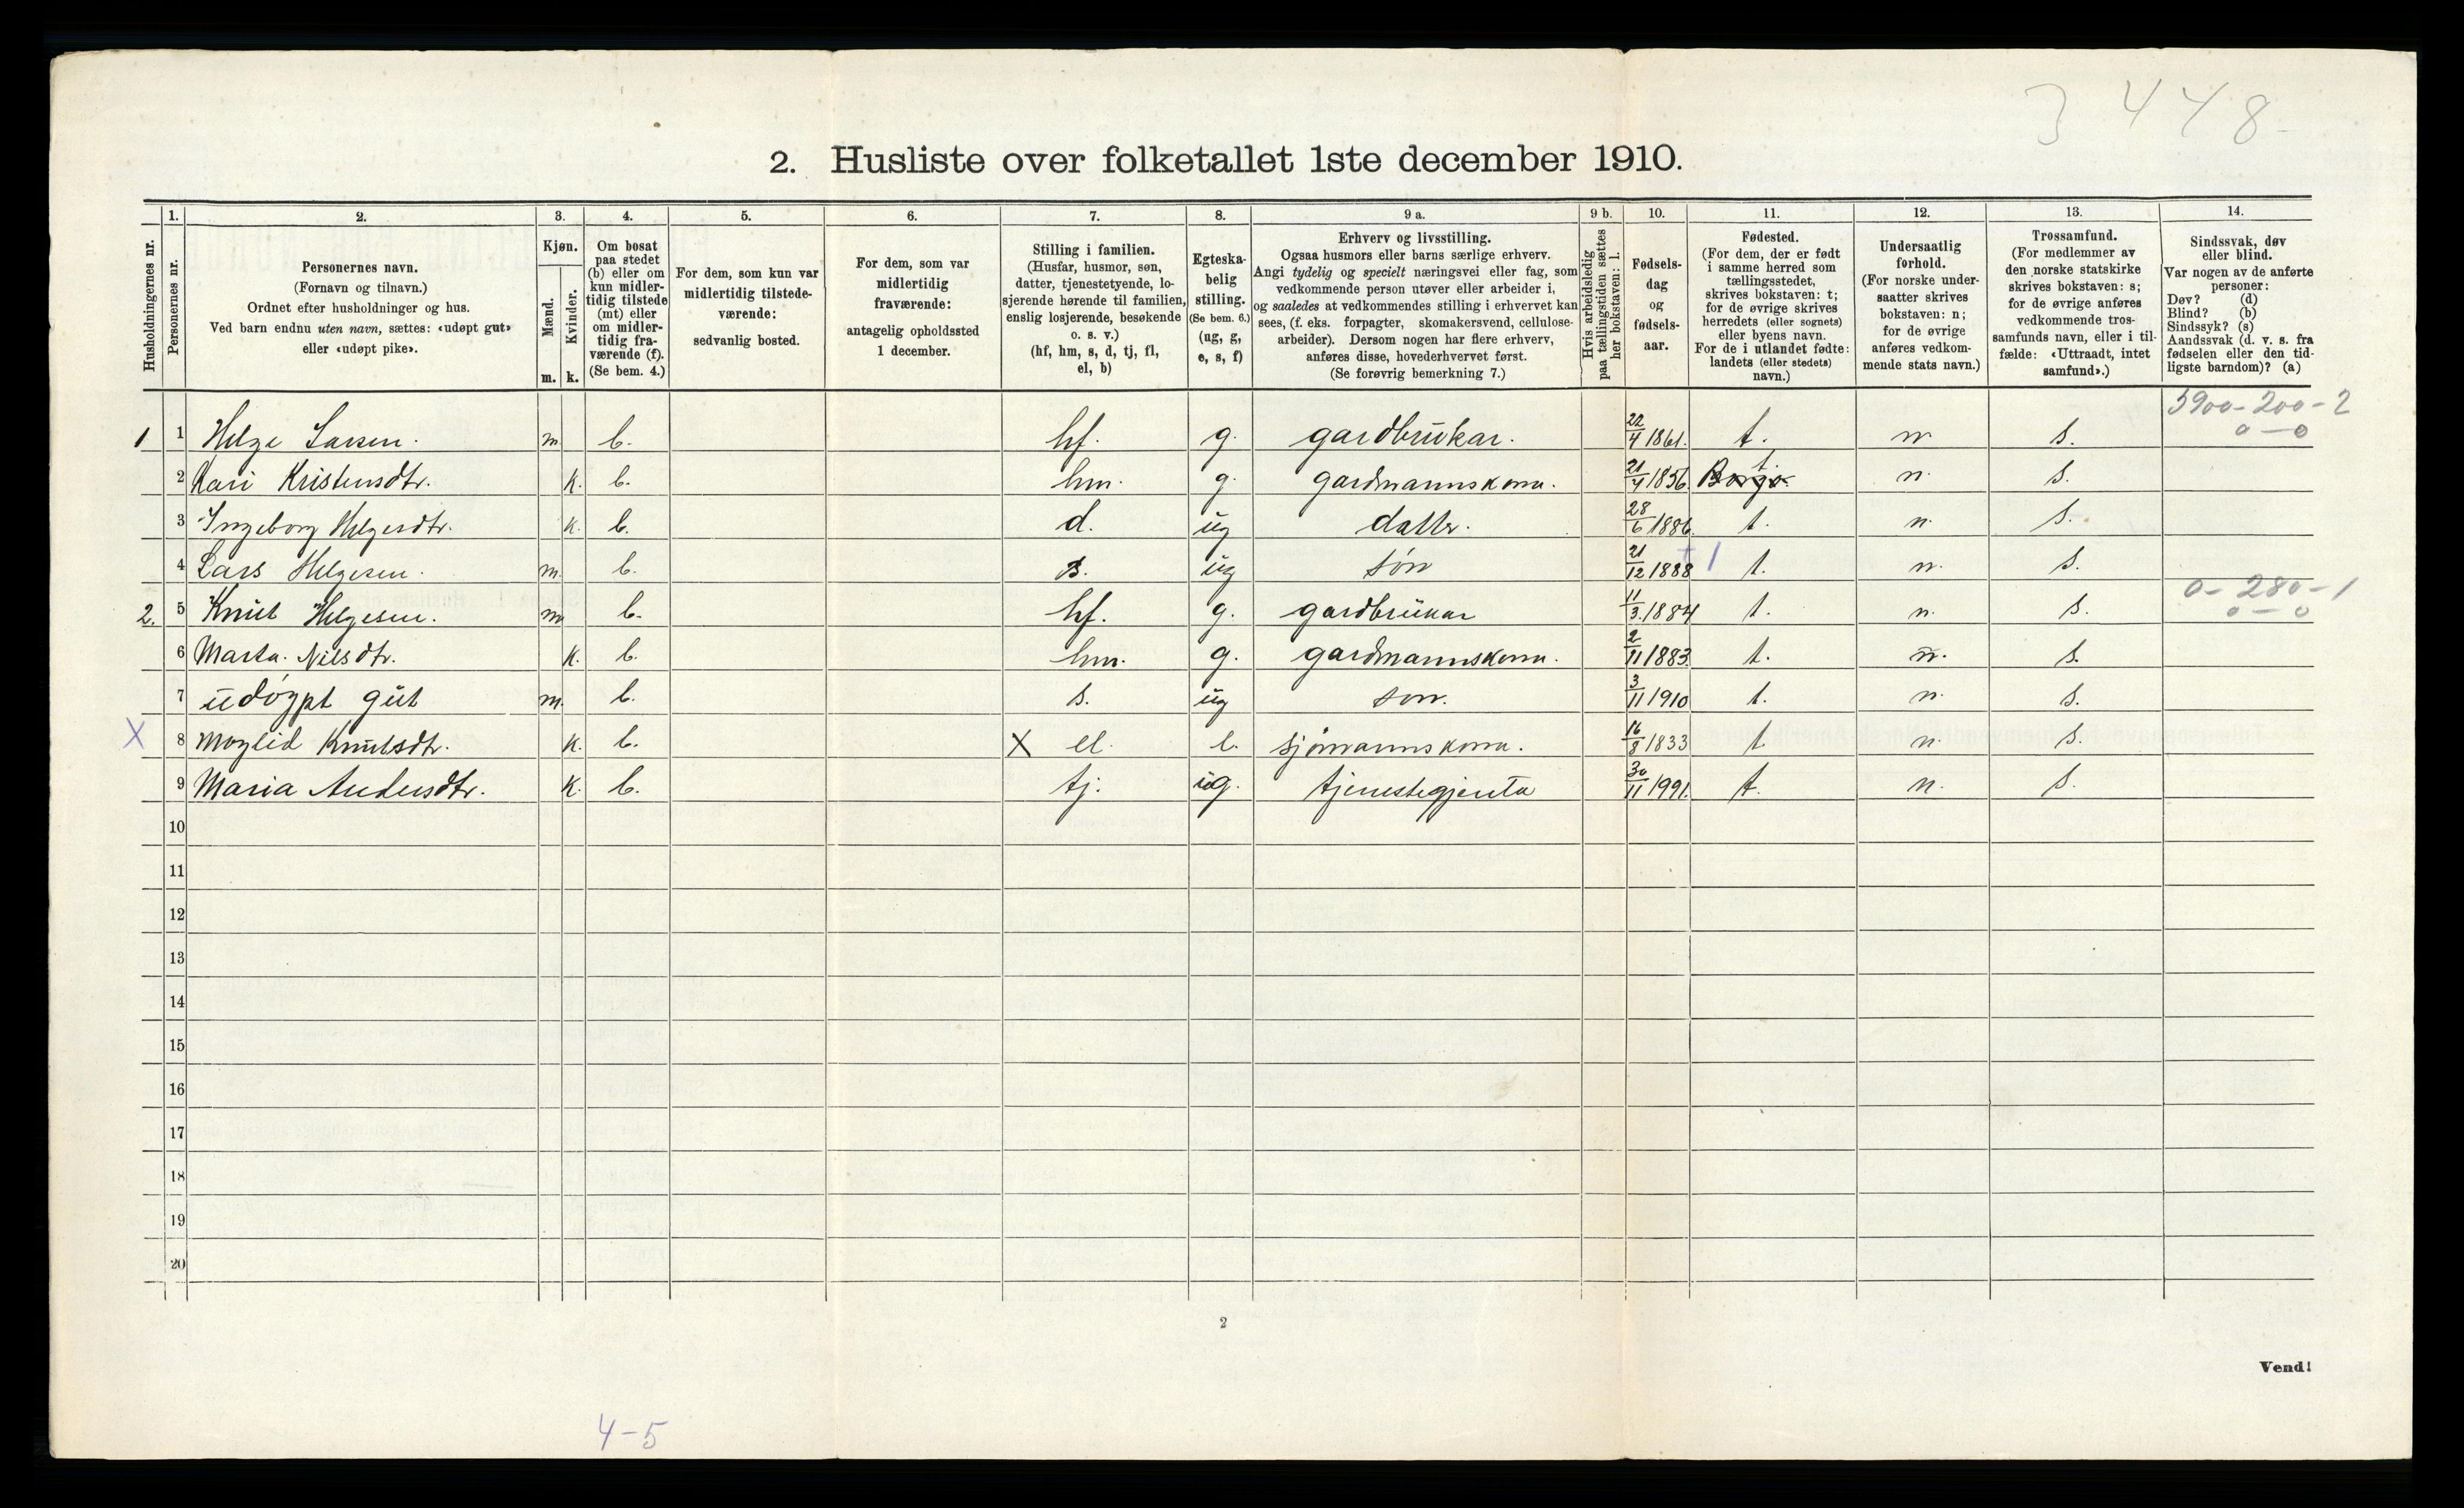 3 448
2. Husliste over folketallet 1ste december 1910.
Husholdningernes nr.
1.
Personernes nr.
2.
Personernes navn.
(Fornavn og tilnavn.)
Ordnet efter husholdninger og hus.
Ved barn endnu uten navn, sættes: «udøpt gut»
eller «udøpt pike».
3.
Kjøn.
Mænd.
Kvinder.
m. k.
4.
Om bosat
paa stedet
(b) eller om
kun midler-
tidig tilstede
(mt) eller
om midler-
tidig fra-
værende (f).
(Se bem. 4.)
5.
For dem, som kun var
midlertidig tilstede-
værende:
sedvanlig bosted.
6.
For dem, som var
midlertidig
fraværende:
antagelig opholdssted
1 december.
7.
Stilling i familien.
(Husfar, husmor, søn,
datter, tjenestetyende, lo-
sjerende hørende til familien,
enslig losjerende, besøkende
o. s. v.)
(hf, hm, s, d, tj, fl,
el, b)
8.
Egteska-
belig
stilling.
(Se bem. 6.)
(ug, g,
e, s, f)
9 a.
Erhverv og livsstilling.
Ogsaa husmors eller barns særlige erhverv.
Angi tydelig og specielt næringsvei eller fag, som
vedkommende person utøver eller arbeider i,
og saaledes at vedkommendes stilling i erhvervet kan
sees, (f. eks. forpagter, skomakersvend, cellulose-
arbeider). Dersom nogen har flere erhverv,
anføres disse, hovederhvervet først.
(Se forøvrig bemerkning 7.)
9 b.
Hvis arbeidsledig
paa tællingstiden sættes
her bokstaven: l.
10.
Fødsels-
dag
og
fødsels-
aar.
11.
Fødested.
(For dem, der er født
i samme herred som
tællingsstedet,
skrives bokstaven: t;
for de øvrige skrives
herredets (eller sognets)
eller byens navn.
For de i utlandet fødte:
landets (eller stedets)
navn.)
12.
Undersaatlig
forhold.
(For norske under-
saatter skrives
bokstaven: n;
for de øvrige
anføres vedkom-
mende stats navn.)
13.
Trossamfund.
(For medlemmer av
den norske statskirke
skrives bokstaven: s;
for de øvrige anføres
vedkommende tros-
samfunds navn, eller i til-
fælde: «Uttraadt, intet
samfund».)
14.
Sindssvak, døv
eller blind.
Var nogen av de anførte
personer:
Døv? (d)
Blind? (b)
Sindssyk? (s)
Aandssvak (d. v. s. fra
fødselen eller den tid-
ligste barndom)? (a)
5900-200-2
0-0
1 1 Helge Larsen. m b. hf. g. gardbrukar. 22/4 1861. t. n. s.
2 Kari Kristensdtr. k. b. hm. g. gardmannskona. 21/4 1856. t. n. s.
3 Ingeborg Helgesdtr. k. b. d. ug datter. 28/6 1886. t. n. s.
4 Lars Helgesen. m. b. s. ug søn 21/12 1888 t. n. s.
0-280-1
0-0
2. 5 Knut Helgesen. m b. hf. g. gardbrukar 11/3. 1884 t. n. s.
6 Marta Nilsdtr. k. b. hm. g. gardmannskona. 2/11 1883. t. n. s.
7 udøypt gut m. b. s. ug son. 3/11 1910 t. n. s.
X 8 Moglid Knutsdtr. k. b. X el. e. sjömannskona. 16/8 1833 t. n. s.
9 Maria Andersdtr. k. b. tj. ug. tjenestegjenta 30/11 1991. t. n. s.
10
11
12
13
14
15
16
17
18
19
20
2
Vend!
4-5